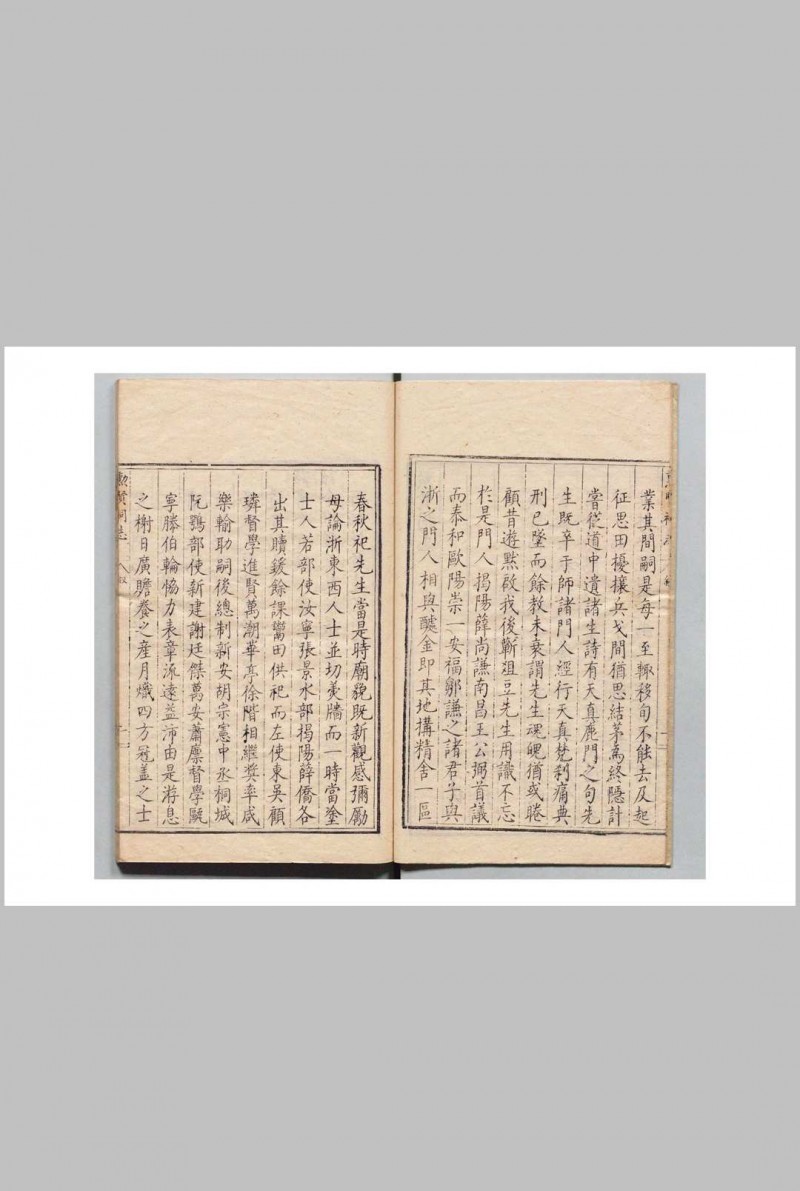 業其間嗣是每一至輙移旬不能去及起
征思田擾攘兵戈間猶思結茅為終隱計
嘗從道中遺諸生詩有天真鹿門之句先
生既卒于師諸門人經行天真梵刹痛典
刑已墜而餘教未衰謂先生魂魄猶或睠
顧昔遊默啟我後蘄俎豆先生用識不忘
於是門人揭陽薛尚謙南昌王公弼首議
而泰和歐陽崇一安福鄒謙之諸君子與
浙之門人相與醵金即其地搆精舍一區
春秋祀先生當是時廟貌既新觀感彌勵
毋論浙東西人士並切羹牆而一時當塗
士人若部使汝寧張景水部揭陽薛僑各
出其贖鍰餘課鬻田供祀而左使東吳顧
璘督學進賢萬潮華亭徐階相繼奬率咸
樂輸助嗣後總制新安胡宗憲中丞桐城
阮鶚部使新建謝廷傑萬安蕭廩督學甌
寧滕伯輪恊力表章流遠益沛由是游息
之榭日廣贍養之産月熾四方冠盖之士
勲賢祠志